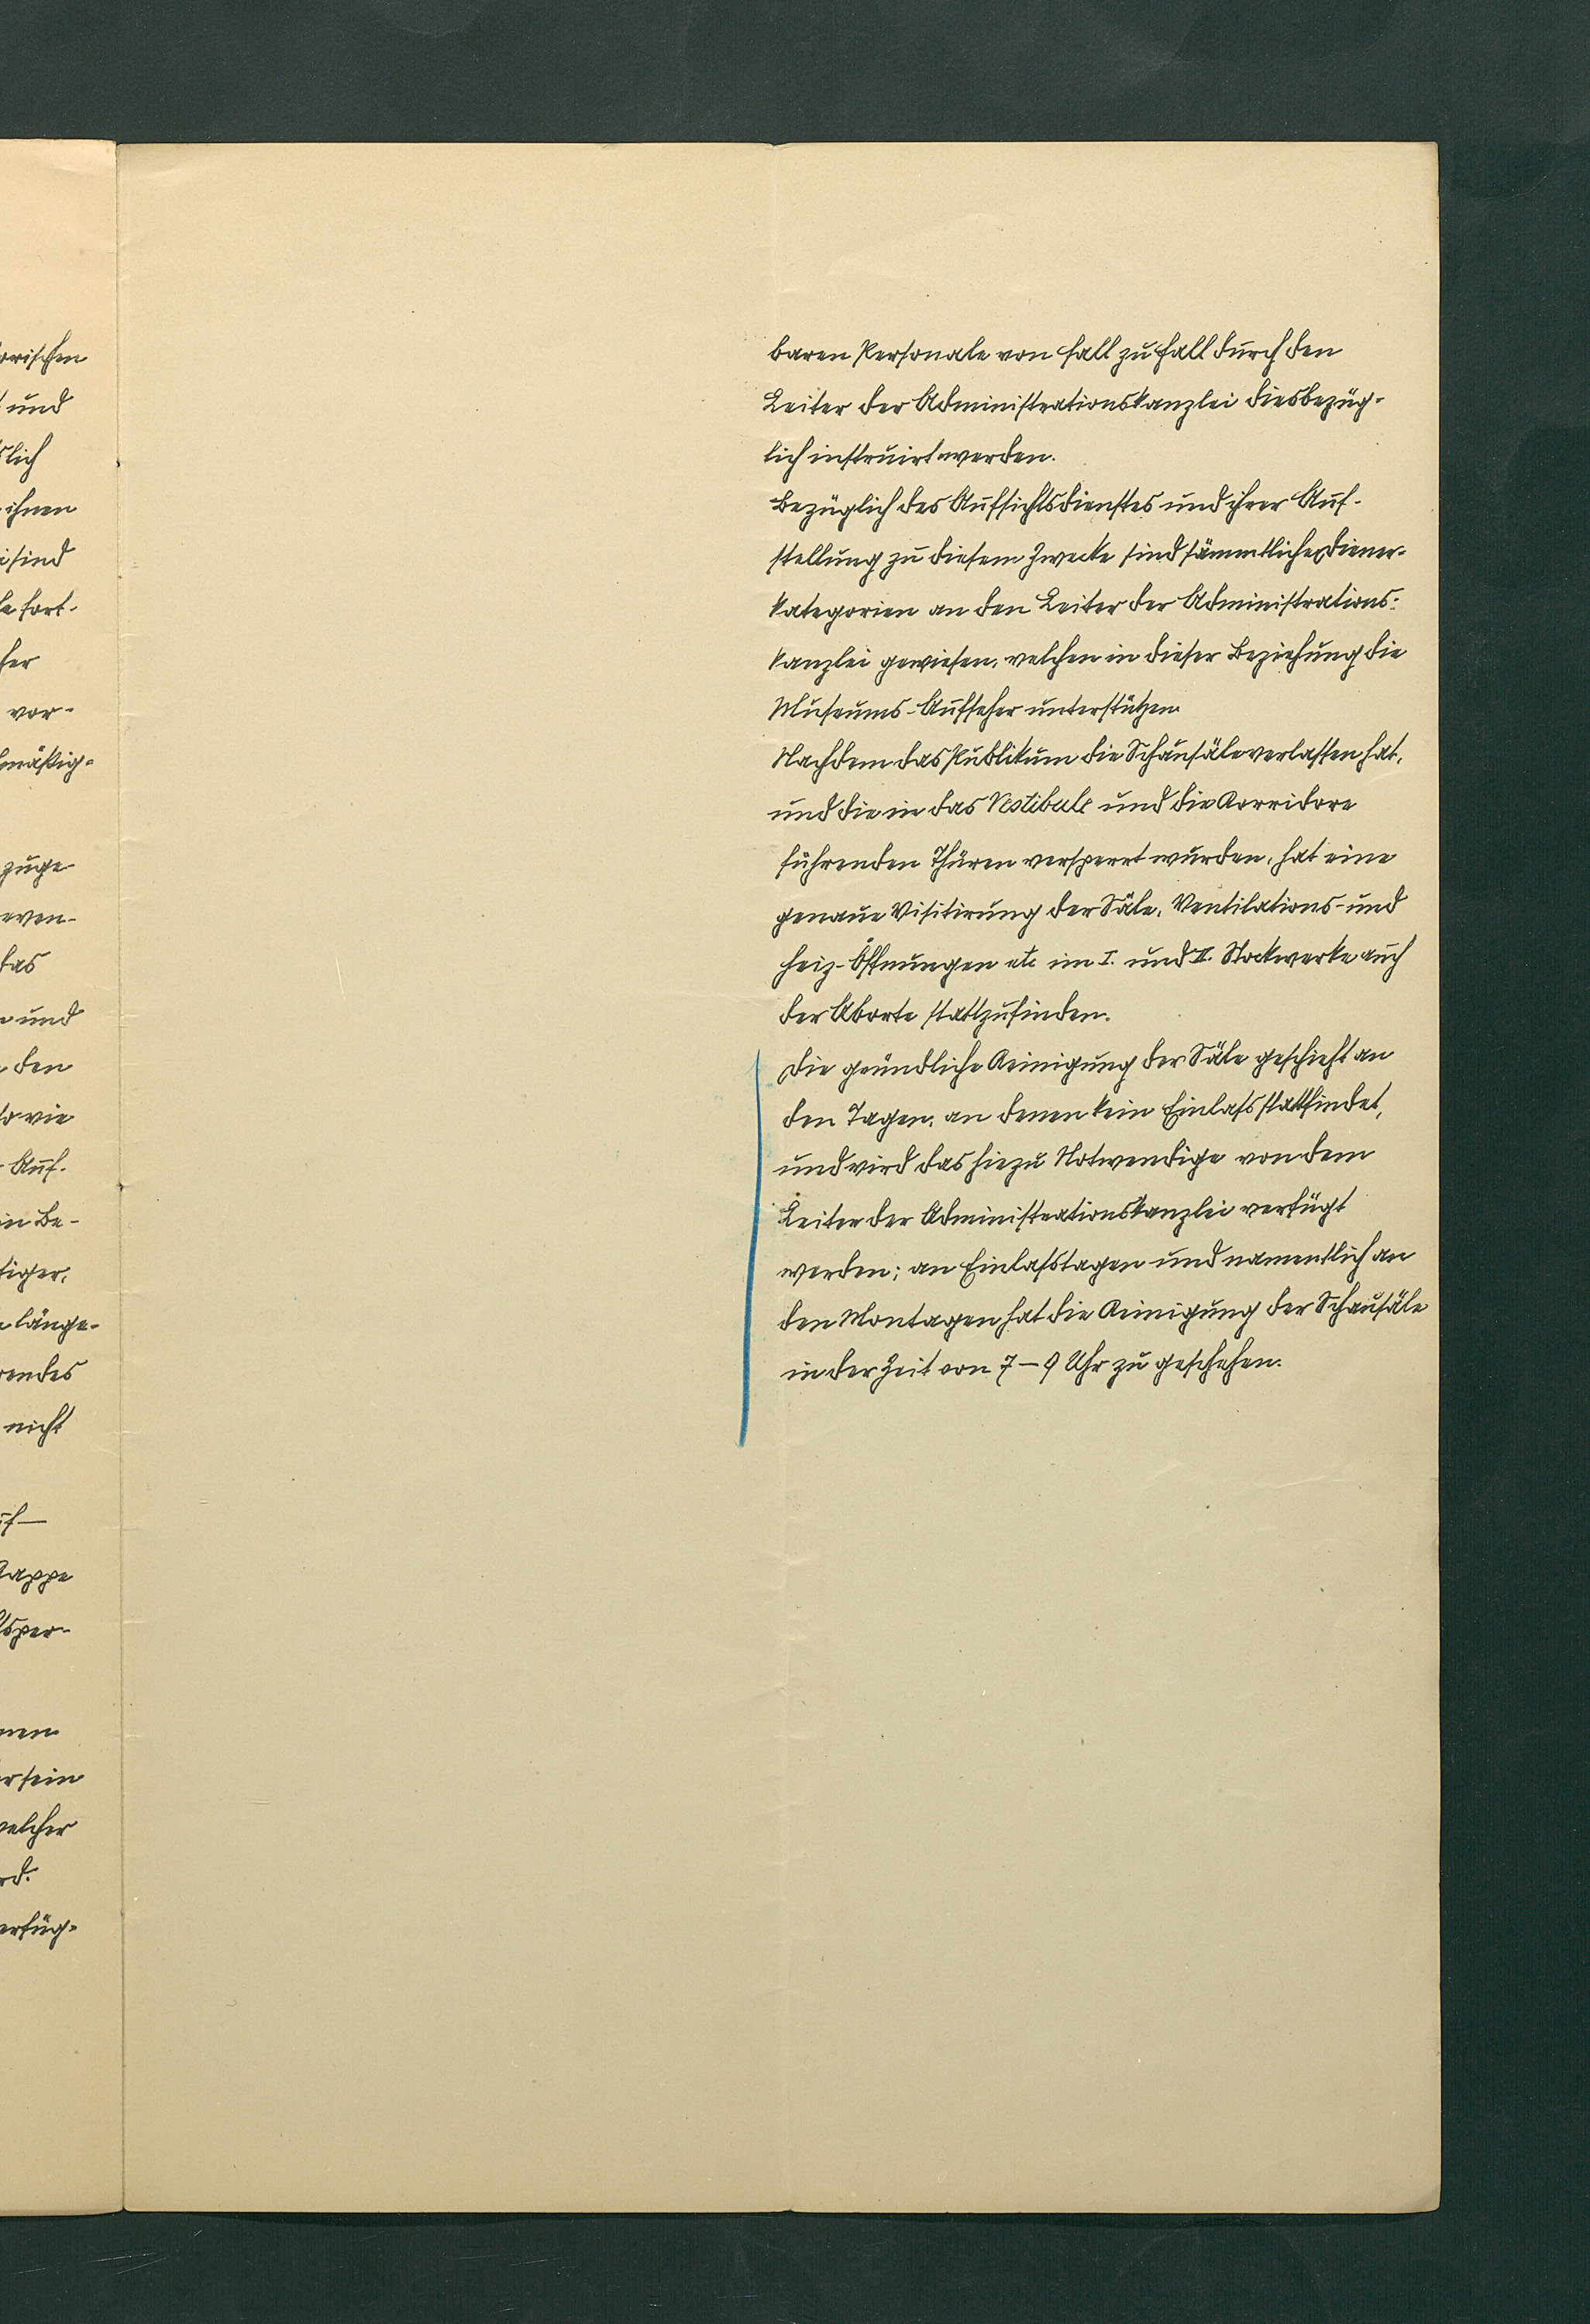 orischen
und
slich
ihnen
sind
le fort-
her
vor-
lmäßig-
zuge
even-
das
und
den
sowie
Auf-
in Be-
tiger,
länge-
rendes
nicht
uf—
Kappe
tsper-
nen
er sein
welcher
rd.
verfüg-
baren Personale von Fall zu Fall durch den
Leiter der Administrationskanzlei diesbezüg-
lich instruirt werden.
Bezüglich des Aufsichtsdienstes und ihrer Auf-
stellung zu diesem Zwecke sind sämmtliche Diener-
kategorien an den Leiter der Administrations-
kanzlei gewiesen, welchen in dieser Beziehung die
Museums-Aufseher unterstützen.
Nachdem das Publikum die Schausäle verlassen hat,
und die in das Vestibule und die Korridore
führenden Thüren versperrt wurden, hat eine
genaue Visitirung der Säle, Ventilations- und
Heiz-Öffnungen etc im I. und II. Stockwerke auch
der Aborte stattzufinden.
Die gründliche Reinigung der Säle geschieht an
den Tagen, an denen kein Einlass stattfindet,
und wird das hiezu Notwendige von dem
Leiter der Administrationskanzlei verfügt
werden; an Einlasstagen und namentlich an
den Montagen hat die Reinigung der Schausäle
in der Zeit von 7–9 Uhr zu geschehen.